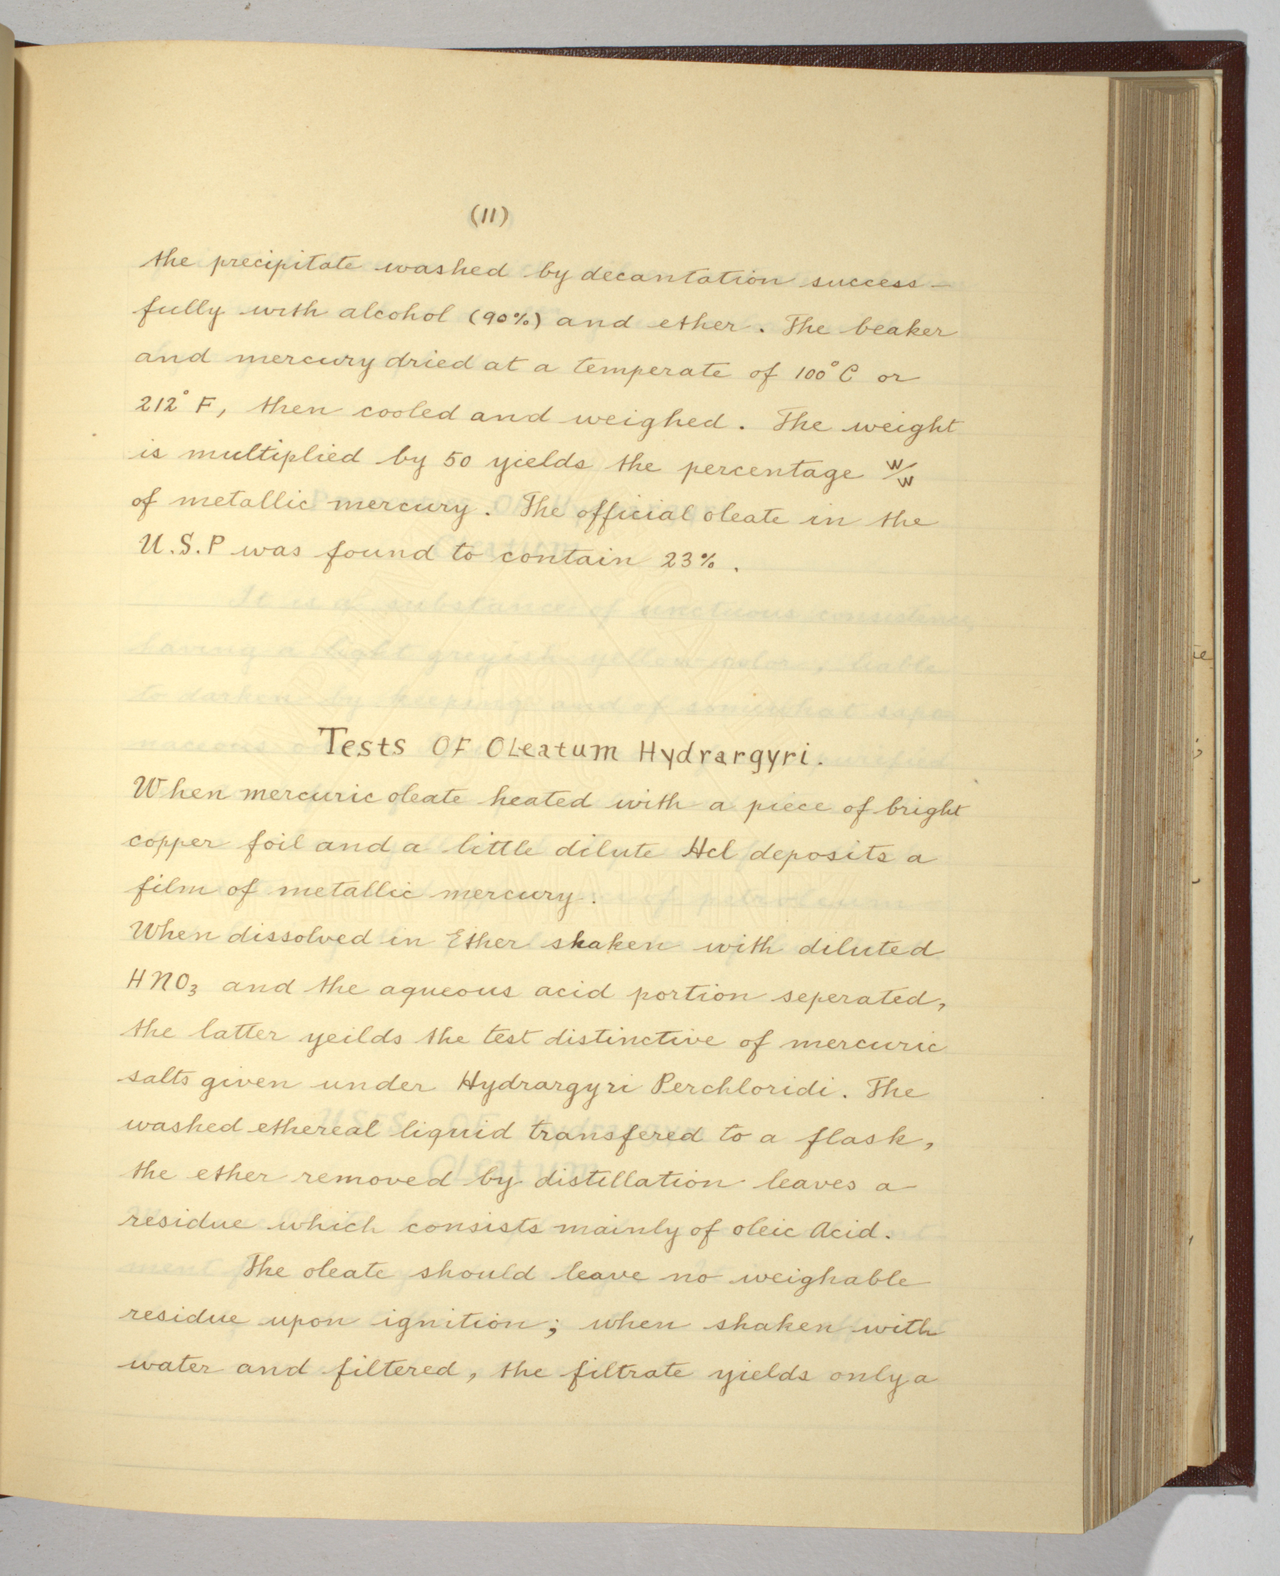 (11)
the precipitate washed by decantation success-
fully with alcohol (90%) and ether. The beaker
and mercury dried at a temperate of 100°C or
212° F, then cooled and weighed. The weight
is multiplied by 50 yields the percentage w/w
of metallic mercury. The official oleate in the
U.S.P was found to contain 23%.
Tests OF OLeatum Hydrargyri.
When mercuric oleate heated with a piece of bright
copper foil and a little dilute Hcl deposits a
film of metallic mercury.
When dissolved in Ether shaken with diluted
HNO3 and the aqueous acid portion seperated,
the latter yeilds the test distinctive of mercuric
salts given under Hydrargyri Perchloridi. The
washed ethereal liquid transfered to a flask,
the ether removed by distillation leaves a
residue which consists mainly of oleic Acid.
The oleate should leave no weighable
residue upon ignition; when shaken with
water and filtered, the filtrate yields only a